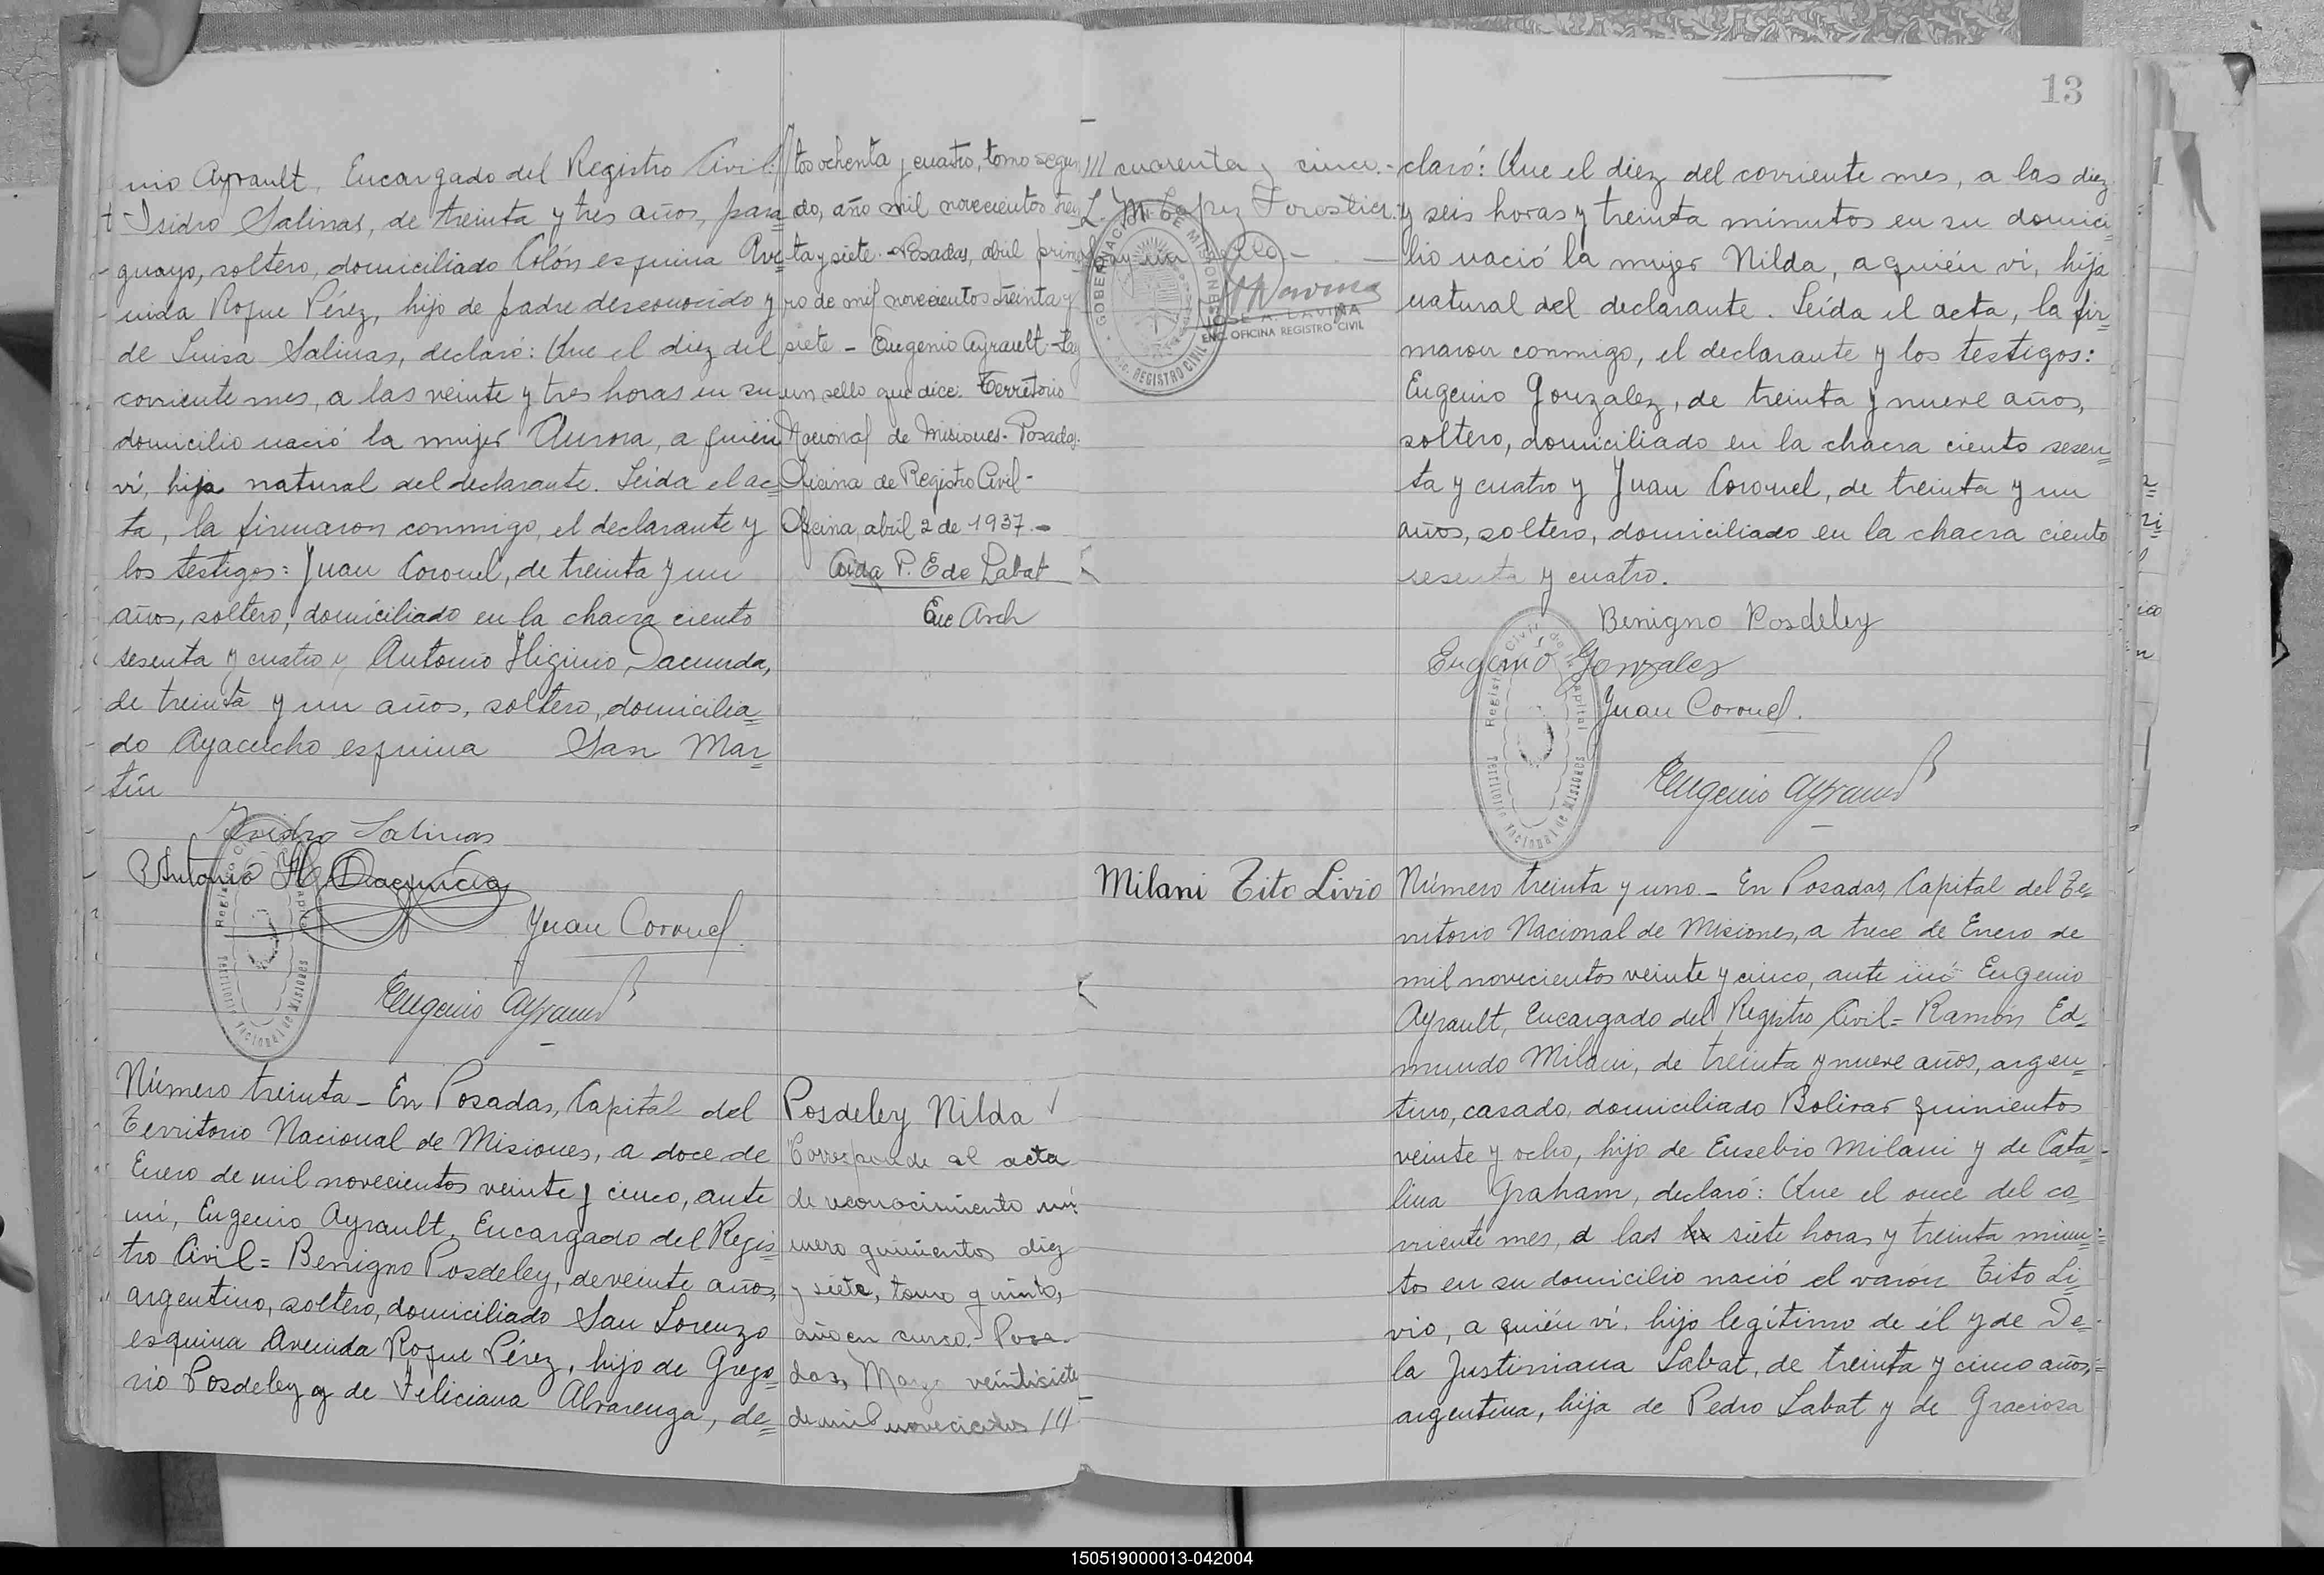 nio Ayrault, Encargado del Registro Civil:
Isidro Salinas, de treinta y tres años, para
guayo, soltero, domiciliado Colón esquina Ave
nida Roque Pérez, hijo de padre desconocido y
de Luisa Salinas, declaró: Que el diez del
corriente mes, a las veinte y tres horas en su
domicilio nació la mujer Aurora, a quién
ví, hija natural del declarante. Leída el ac=
ta, la firmaron conmigo, el declarante y
los testigos: Juan Coronel, de treinta y un
años, soltero, domiciliado en la chacra ciento
sesenta y cuatro y Antonio Higinio Dacunda,
de treinta y un años, soltero, domicilia=
do Ayacucho esquina San Mar=
tín
Isidro Salinas
Antonio H. Dacunda
Juan Coronel.
Eugenio Ayrault
Registro Civil de la Capital
Territorio Nacional de Misiones
Número treinta - En Posadas, Capital del
Territorio Nacional de Misiones, a doce de
Enero de mil novecientos veinte y cinco, ante
mí, Eugenio Ayrault, Encargado del Regis=
tro Civil = Benigno Posdeley, de veinte años,
argentino, soltero, domiciliado San Lorenzo
esquina Avenida Roque Pérez, hijo de Grego=
rio Posdeley y de Feliciana Alvarenga, de=
tos ochenta y cuatro, tomo segun
do, año mil novecientos trein
ta y siete. - Posadas, abril prime
ro de mil novecientos treinta y
siete - Eugenio Ayrault - Hay
un sello que dice: Territorio
Nacional de Misiones - Posadas.
Oficina de Registro Civil -
Oficina, abril 2 de 1937. -
Aida P. E de Labat
Enc Arch
Posdeley Nilda
"Corresponde al acta
de reconocimiento nú
mero quinientos diez
y siete, tomo quinto,
año en curso. - Posa-
das, Marzo veintisiete
de mil novecientos ///
/// cuarenta y cinco. -
L. M. Lopez Forastier.
Hay un sello -
GOBERNACION DE MISIONES
REGISTRO CIVIL
JOSE A. LAVIÑA
ENC. OFICINA REGISTRO CIVIL
Milani Tito Livio
13
claró: Que el diez del corriente mes, a las diez
y seis horas y treinta minutos en su domici=
lio nació la mujer Nilda, a quién ví, hija
natural del declarante. Leída el acta, la fir=
maron conmigo, el declarante y los testigos:
Eugenio Gonzalez, de treinta y nueve años,
soltero, domiciliado en la chacra ciento sesen=
ta y cuatro y Juan Coronel, de treinta y un
años, soltero, domiciliado en la chacra ciento
sesenta y cuatro.
Benigno Posdeley
Eugenio Gonzalez
Juan Coronel.
Eugenio Ayrault
Registro Civil de la Capital
Territorio Nacional de Misiones
Número treinta y uno - En Posadas, Capital del Te=
rritorio Nacional de Misiones, a trece de Enero de
mil novecientos veinte y cinco, ante mí Eugenio
Ayrault, Encargado del Registro Civil = Ramón Ed=
mundo Milani, de treinta y nueve años, argen=
tino, casado, domiciliado Bolivar quinientos
veinte y ocho, hijo de Eusebio Milani y de Cata=
lina Graham, declaró: Que el once del co=
rriente mes, a las siete horas y treinta minu=
tos en su domicilio nació el varón Tito Li=
vio, a quién ví, hijo legítimo de él y de De=
la Justiniana Labat, de treinta y cinco años,=
argentina, hija de Pedro Labat y de Graciosa
150519000013-042004